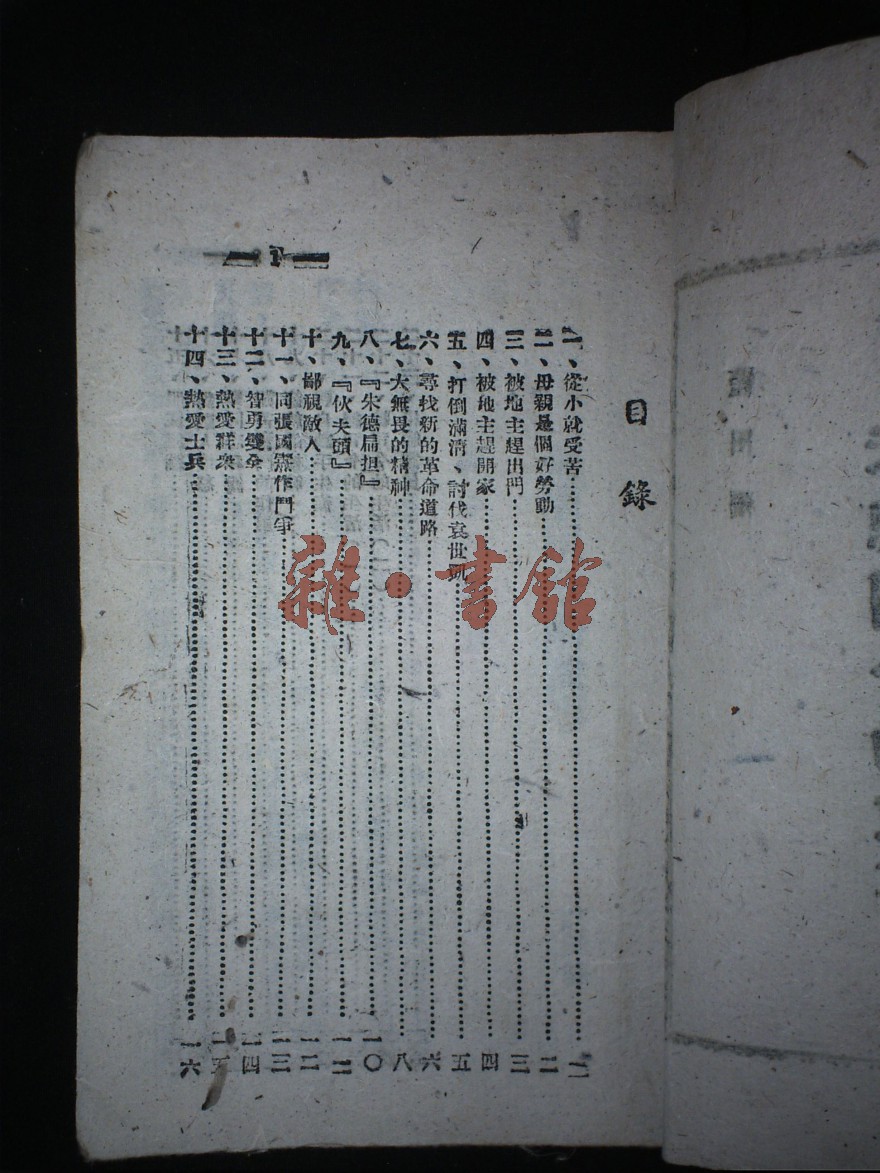 目錄
一、從小就受苦……二
二、母親是個好勞動……二
三、被地主趕出門……三
四、被地主趕開家……四
五、打倒滿清、討伐袁世凱……五
六、尋找新的革命道路……六
七、大無畏的精神……八
八、『朱德扁担』……一〇
九、『伙夫頭』……一二
十、鄙視敵人……一二
十一、同張國燾作鬥爭……一三
十二、智勇雙全……一四
十三、熱愛群衆……一五
十四、熱愛士兵……一六
1
雜·書館